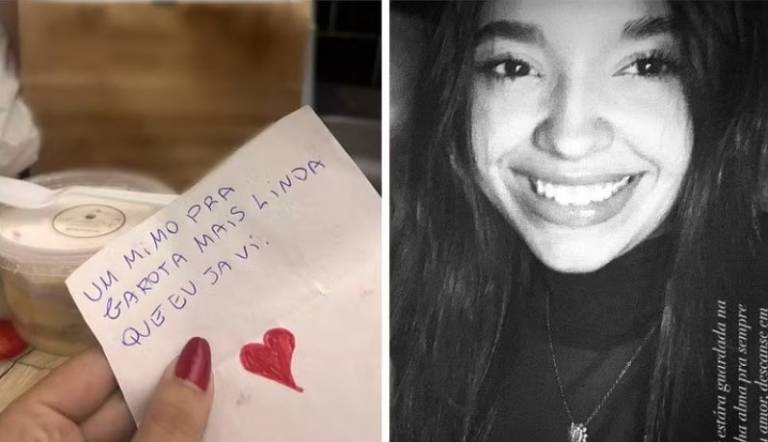 UM MIMO PRA
GAROTA MAIS LINDA
QUE EU JA VI.
estára guardada na
alma pra sempre
amor, descanse em